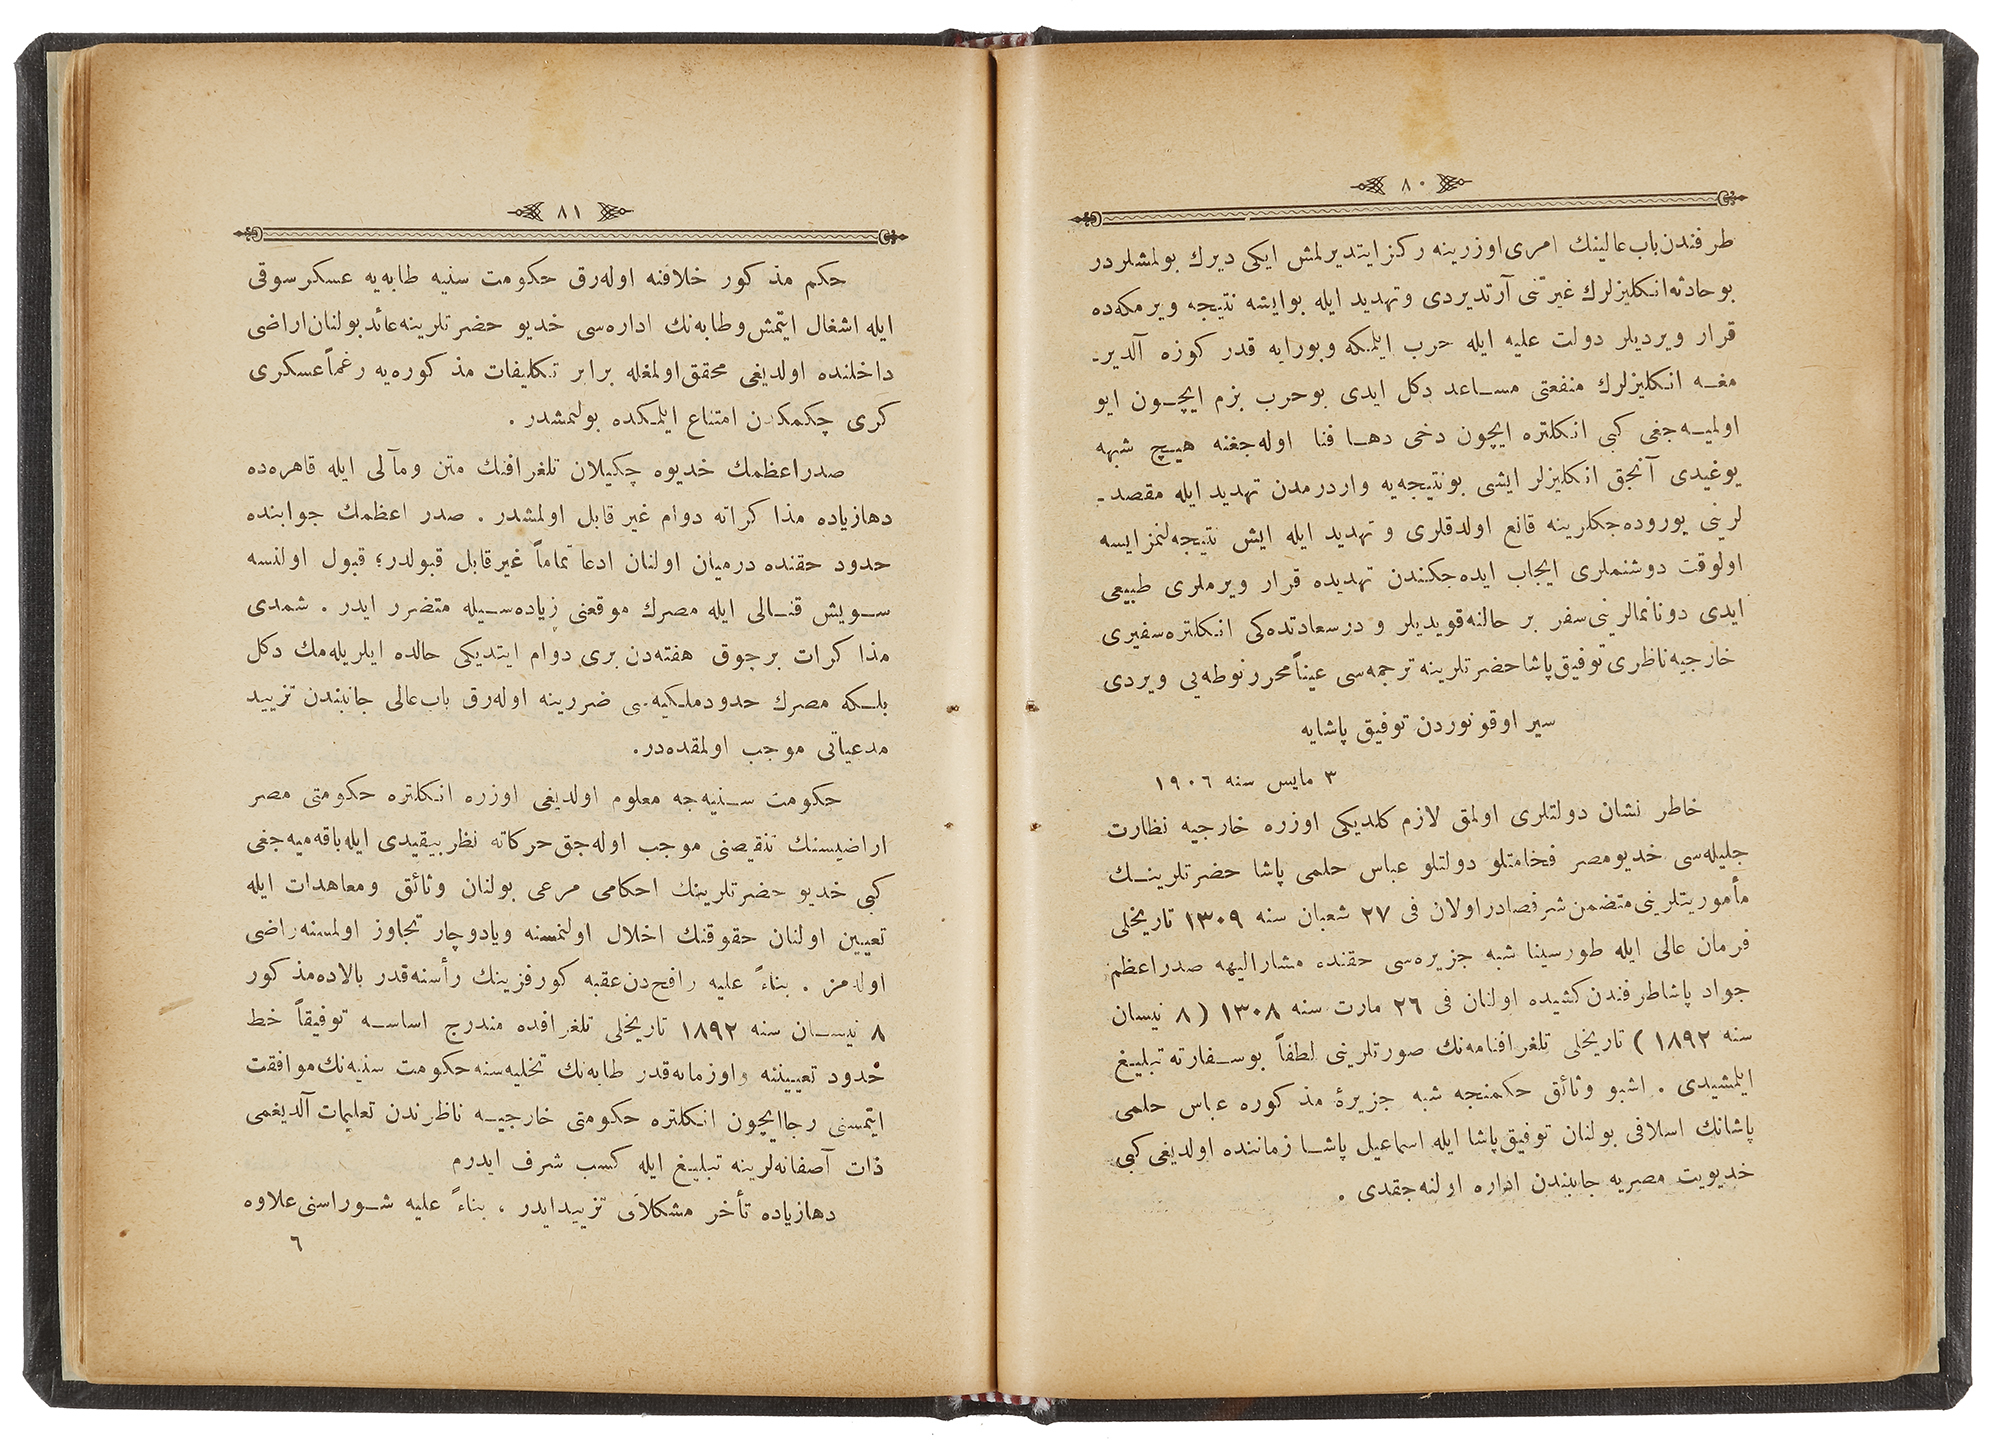 ٨٠
طرفندن باب عالينك امری اوزرينه ركز ايتديرلمش ايكی ديرك بولمشلردر
بو حادثه انكليزلرك غيرتنی آرتديردی و تهديد ايله بو ايشه نتيجه ويرمكه ده
قرار ويرديلر دولت عليه ايله حرب ايلمكه و بورايه قدر كوزه آلدير-
مغه انكليزلرك منفعتی مساعد دكل ايدی بو حرب بزم ايچون ايو
اولميه جغی كبی انكلتره ايچون دخی دها فنا اوله جغنه هيچ شبهه
يوغيدی آنجق انكليزلر ايشی بو نتيجه يه واردرمدن تهديد ايله مقصد-
لرينی يوروده جكلرينه قانع اولدقلری و تهديد ايله ايش نتيجه لنمز ايسه
اولوقت دوشنملری ايجاب ايده جكندن تهديده قرار ويرملری طبيعی
ايدی دونانمالرينی سفر بر حالنه قويديلر و درسعادتده كی انكلتره سفيری
خارجيه ناظری توفيق پاشا حضرتلرينه ترجمه سی عيناً محرر نوطه يی ويردی
سير اوقونوردن توفيق پاشايه
٣ مايس سنه ١٩٠٦
خاطر نشان دولتلری اولمق لازم كلديكی اوزره خارجيه نظارت
جليله سی خديو مصر فخامتلو دولتلو عباس حلمی پاشا حضرتلرينك
مأموريتلرينی متضمن شرفصادر اولان فی ٢٧ شعبان سنه ١٣٠٩ تاريخلی
فرمان عالی ايله طورسينا شبه جزيره سی حقنده مشاراليهه صدراعظم
جواد پاشا طرفندن كشيده اولنان فی ٢٦ مارت سنه ١٣٠٨ ( ٨ نيسان
سنه ١٨٩٢ ) تاريخلی تلغرافنامه نك صورتلرينی لطفاً بو سفارته تبليغ
ايلمشيدی . اشبو وثائق حكمنجه شبه جزيرۀ مذكوره عباس حلمی
پاشانك اسلافی بولنان توفيق پاشا ايله اسماعيل پاشا زماننده اولديغی كبی
خديويت مصريه جانبندن اداره اولنه جقدی .
٨١
حكم مذكور خلافنه اوله رق حكومت سنيه طابه يه عسكر سوقی
ايله اشغال ايتمش و طابه نك اداره سی خديو حضرتلرينه عائد بولنان اراضی
داخلنده اولديغی محقق اولمغله برابر تكليفات مذكوره يه رغماً عسكری
كری چكمكدن امتناع ايلمكده بولنمشدر .
صدراعظمك خديوه چكيلان تلغرافنك متن و مآلی ايله قاهره ده
دها زياده مذاكراته دوام غير قابل اولمشدر . صدر اعظمك جوابنده
حدود حقنده درميان اولنان ادعا تماماً غير قابل قبولدر؛ قبول اولنسه
سويش قنالی ايله مصرك موقعنی زياده سيله متضرر ايدر . شمدی
مذاكرات برجوق هفته دن بری دوام ايتديكی حالده ايلريله مك دكل
بلكه مصرك حدود ملكيه سی ضررينه اوله رق باب عالی جانبندن تزييد
مدعياتی موجب اولمقده در.
حكومت سنيه جه معلوم اولديغی اوزره انكلتره حكومتی مصر
اراضيسنك تنقيصنی موجب اوله جق حركاته نظر بيقيدی ايله باقه ميه جغی
كبی خديو حضرتلرينك احكامی مرعی بولنان وثائق و معاهدات ايله
تعيين اولنان حقوقنك اخلال اولنمسنه ويا دوچار تجاوز اولمسنه راضی
اوله مز . بناءً عليه رافح دن عقبه كورفزينك رأسنه قدر بالاده مذكور
٨ نيسان سنه ١٨٩٢ تاريخلی تلغرافده مندرج اساسه توفيقاً خط
حدود تعييننه و اوزمانه قدر طابه نك تخليه سنه حكومت سنيه نك موافقت
ايتمسنی رجا ايچون انكلتره حكومتی خارجيه ناظرندن تعليمات آلديغمی
ذات آصفانه لرينه تبليغ ايله كسب شرف ايدرم
دها زياده تأخر مشكلاتی تزييد ايدر ، بناءً عليه شوراسنی علاوه
٦